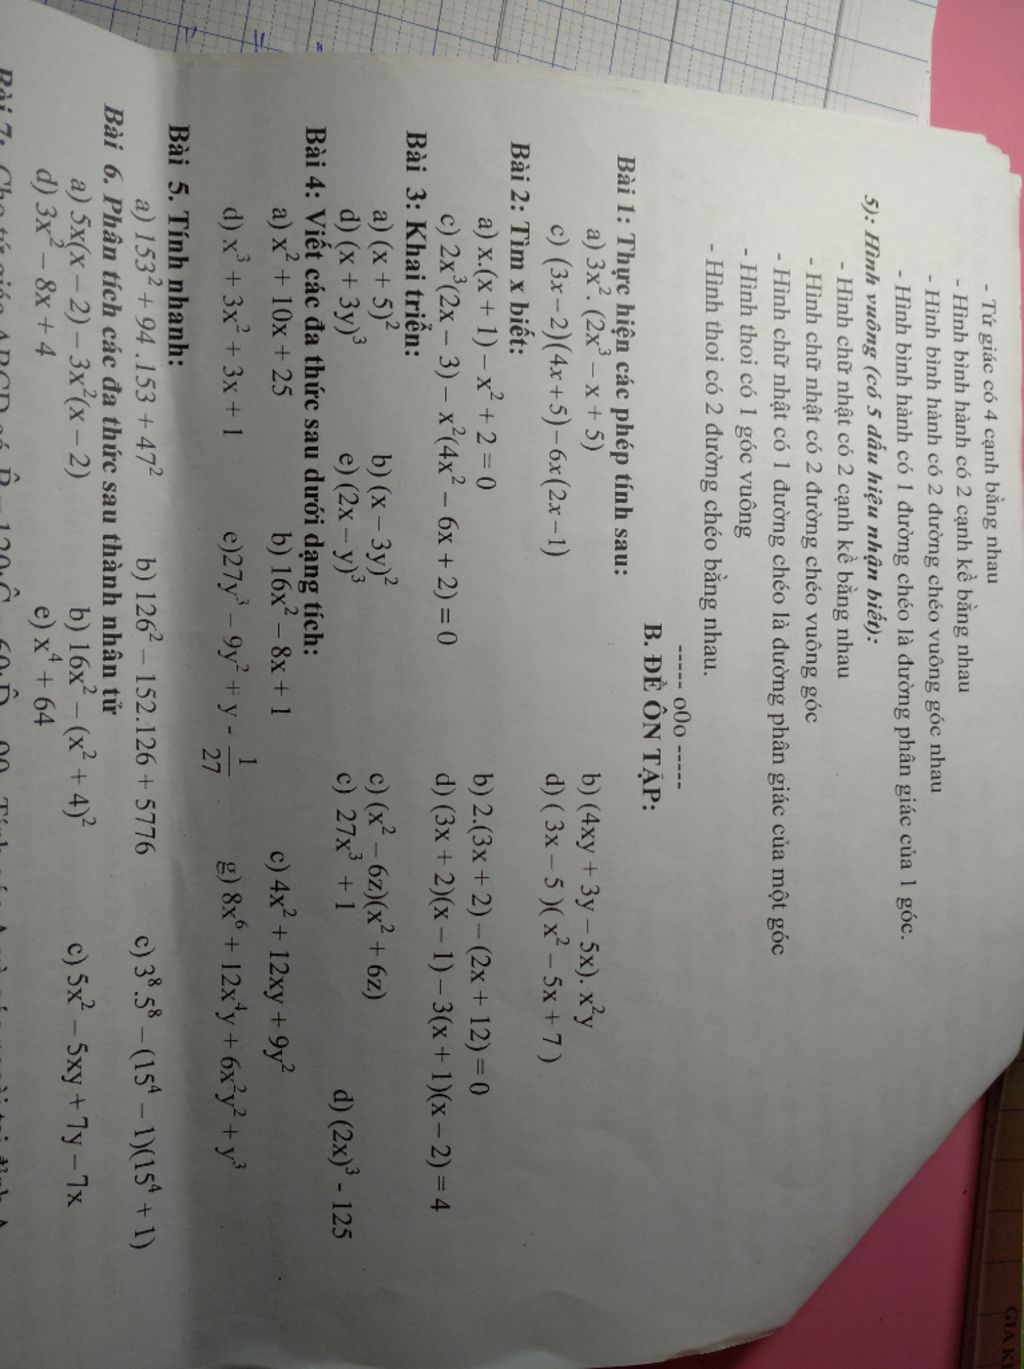 - Tứ giác có 4 cạnh bằng nhau
- Hình bình hành có 2 cạnh kề bằng nhau
- Hình bình hành có 2 đường chéo vuông góc nhau
- Hình bình hành có 1 đường chéo là đường phân giác của 1 góc.
5): Hình vuông (có 5 dấu hiệu nhận biết):
- Hình chữ nhật có 2 cạnh kề bằng nhau
- Hình chữ nhật có 2 đường chéo vuông góc
- Hình chữ nhật có 1 đường chéo là đường phân giác của một góc
- Hình thoi có 1 góc vuông
- Hình thoi có 2 đường chéo bằng nhau.
----- o0o -----
B. ĐỀ ÔN TẬP:
Bài 1: Thực hiện các phép tính sau:
a) 3x². (2x³ – x + 5) b) (4xy + 3y – 5x). x²y
c) (3x – 2)(4x + 5) – 6x(2x – 1) d) ( 3x – 5 )( x² – 5x + 7 )
Bài 2: Tìm x biết:
a) x.(x + 1) – x² + 2 = 0 b) 2.(3x + 2) – (2x + 12) = 0
c) 2x³(2x – 3) – x²(4x² – 6x + 2) = 0 d) (3x + 2)(x – 1) – 3(x + 1)(x – 2) = 4
Bài 3: Khai triển:
a) (x + 5)² b) (x – 3y)² c) (x² – 6z)(x² + 6z)
d) (x + 3y)³ e) (2x – y)³ c) 27x³ + 1 d) (2x)³ - 125
Bài 4: Viết các đa thức sau dưới dạng tích:
a) x² + 10x + 25 b) 16x² – 8x + 1 c) 4x² + 12xy + 9y²
d) x³ + 3x² + 3x + 1 e)27y³ – 9y² + y - 1/27 g) 8x⁶ + 12x⁴y + 6x²y² + y³
Bài 5. Tính nhanh:
a) 153² + 94 .153 + 47² b) 126² – 152.126 + 5776 c) 3⁸.5⁸ – (15⁴ – 1)(15⁴ + 1)
Bài 6. Phân tích các đa thức sau thành nhân tử
a) 5x(x – 2) – 3x²(x – 2) b) 16x² – (x² + 4)² c) 5x² – 5xy + 7y – 7x
d) 3x² – 8x + 4 e) x⁴ + 64
Bài 7: Cho tứ giác ABCD có
GIA K